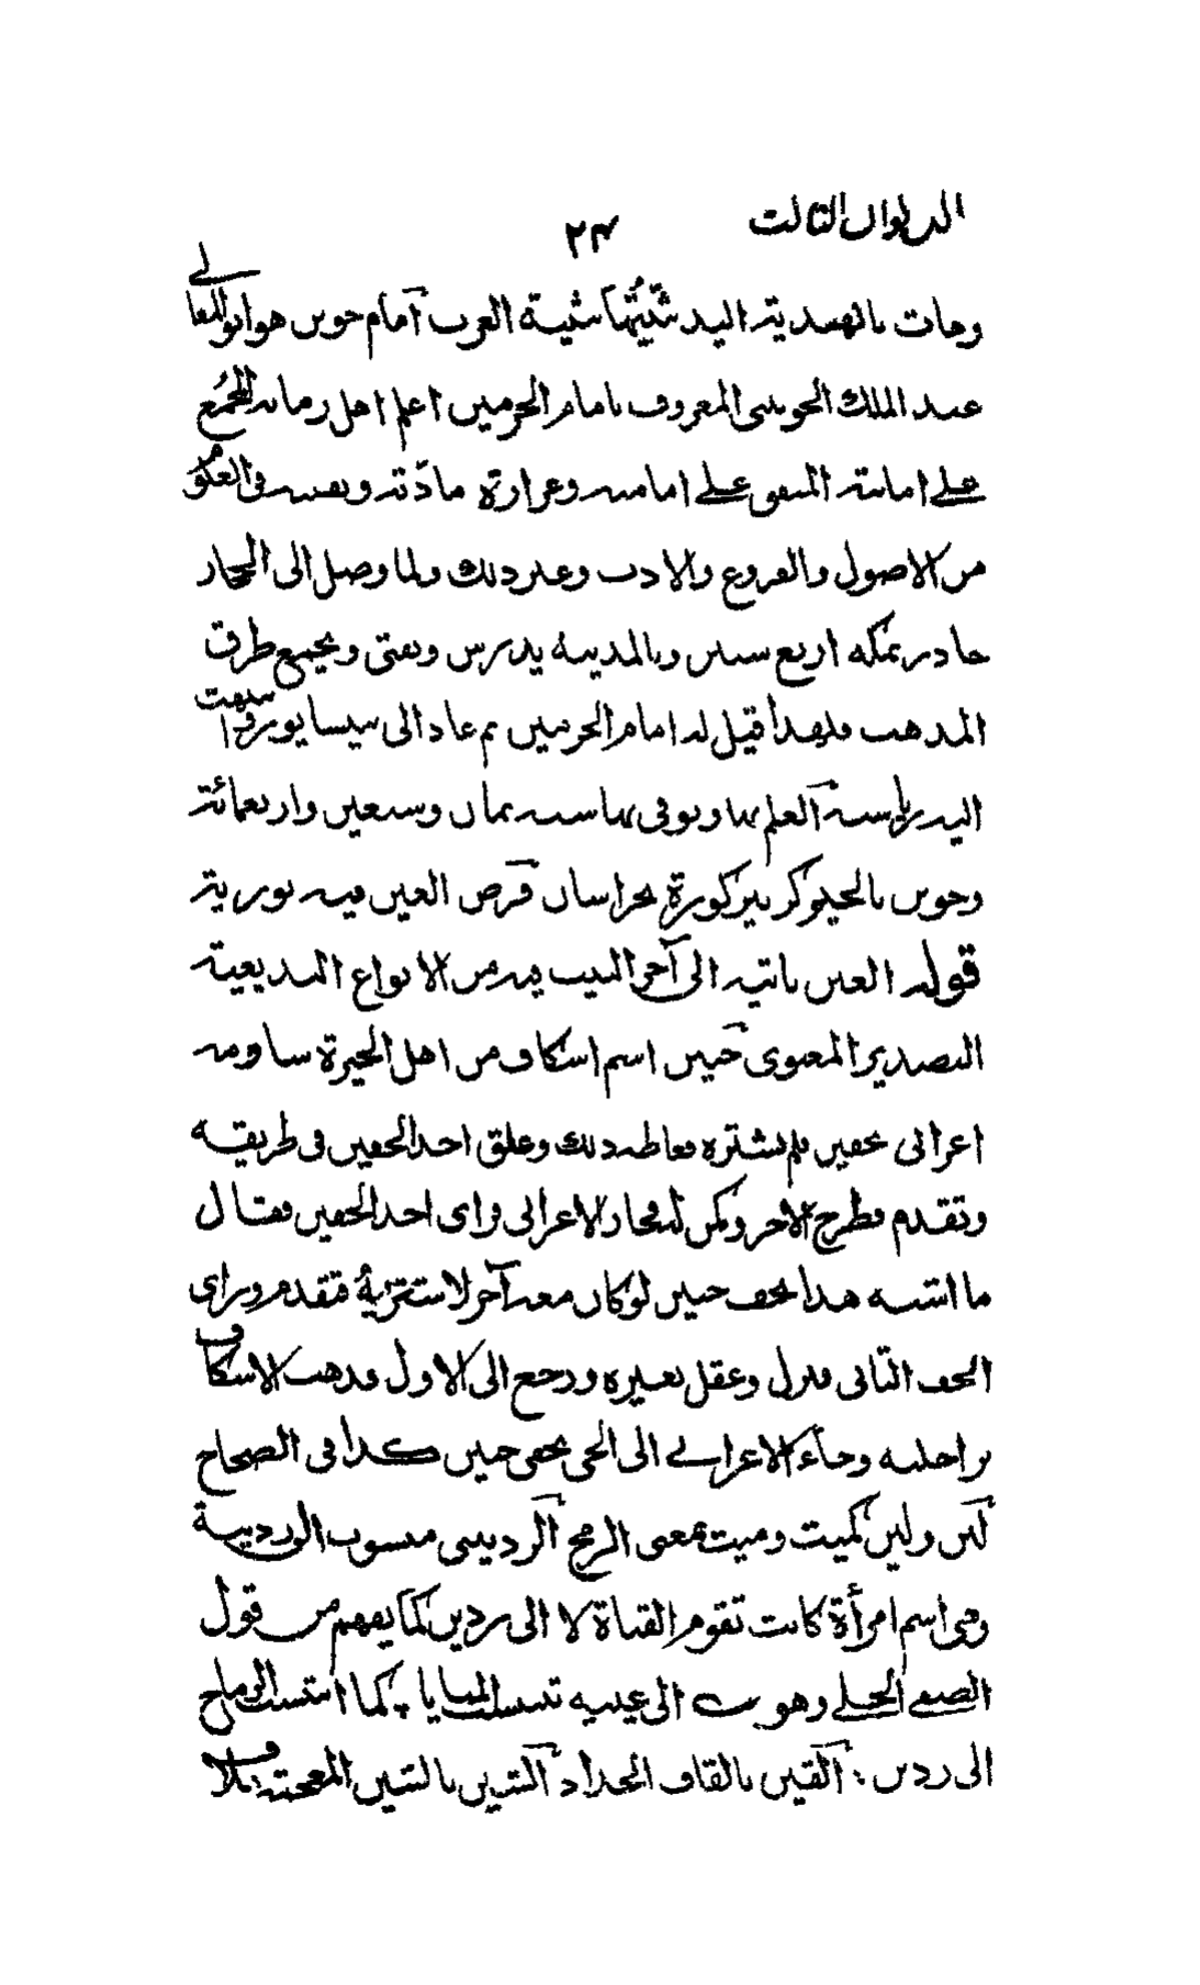 الديوان الثالث
٢٤
وجات بالهسدية اليد شيتها شيبة العرب امام جوين هو ابو المعالي
عبد الملك الجويني المعروف بامام الحرمين اعلم اهل زمانه المجمع
على امامته المتفق على امامته وغزارة مادّته وتفننه في العلوم
من الاصول والفروع والادب وغير ذلك ولما وصل الى الحجاز
جاور بمكه اربع سنين وبالمدينة يدرس ويفتي ويجمع طرق
المذهب فلهذا قيل له امام الحرمين ثم عاد الى نيسابور وانتهت
اليه رياسة العلم بها وتوفى بها سنه ثمان وسبعين واربعمائة
وجوين بالجيم كزبير كورة بخراسان قرص العين فيه تورية
قوله العين ياتيه الى آخر البيت فيه من الانواع البديعية
التصدير المعنوى حنين اسم اسكاف من اهل الحيرة ساومه
اعرابي بخفين فلم يشتره فغاظه ذلك وعلق احد الخفين في طريقه
وتقدم فطرح الاخر وكمن له فجاز الاعرابي فراى احد الخفين فقال
ما اشبه هذا بخف حنين لو كان معه آخر لاستتريه فتقدم وراى
الخف الثاني فنزل وعقل بعيره ورجع الى الاول فذهب الاسكاف
براحلته وجاء الاعرابي الى الحي بخفي حنين كذا في الصحاح
لين ولين كميت وميت بمعنى الرمح الرديني منسوب الى ردينة
وهي اسم امرأة كانت تقوم القناة لا الى ردين كما يفهم من قول
الصفي الحلي وهو بيت الى عينيه تنتسب المنايا ٭ كما انتسب الرماح
الى ردين ؛ القين بالقاف الحداد الشين بالشين المعجمة خلاف